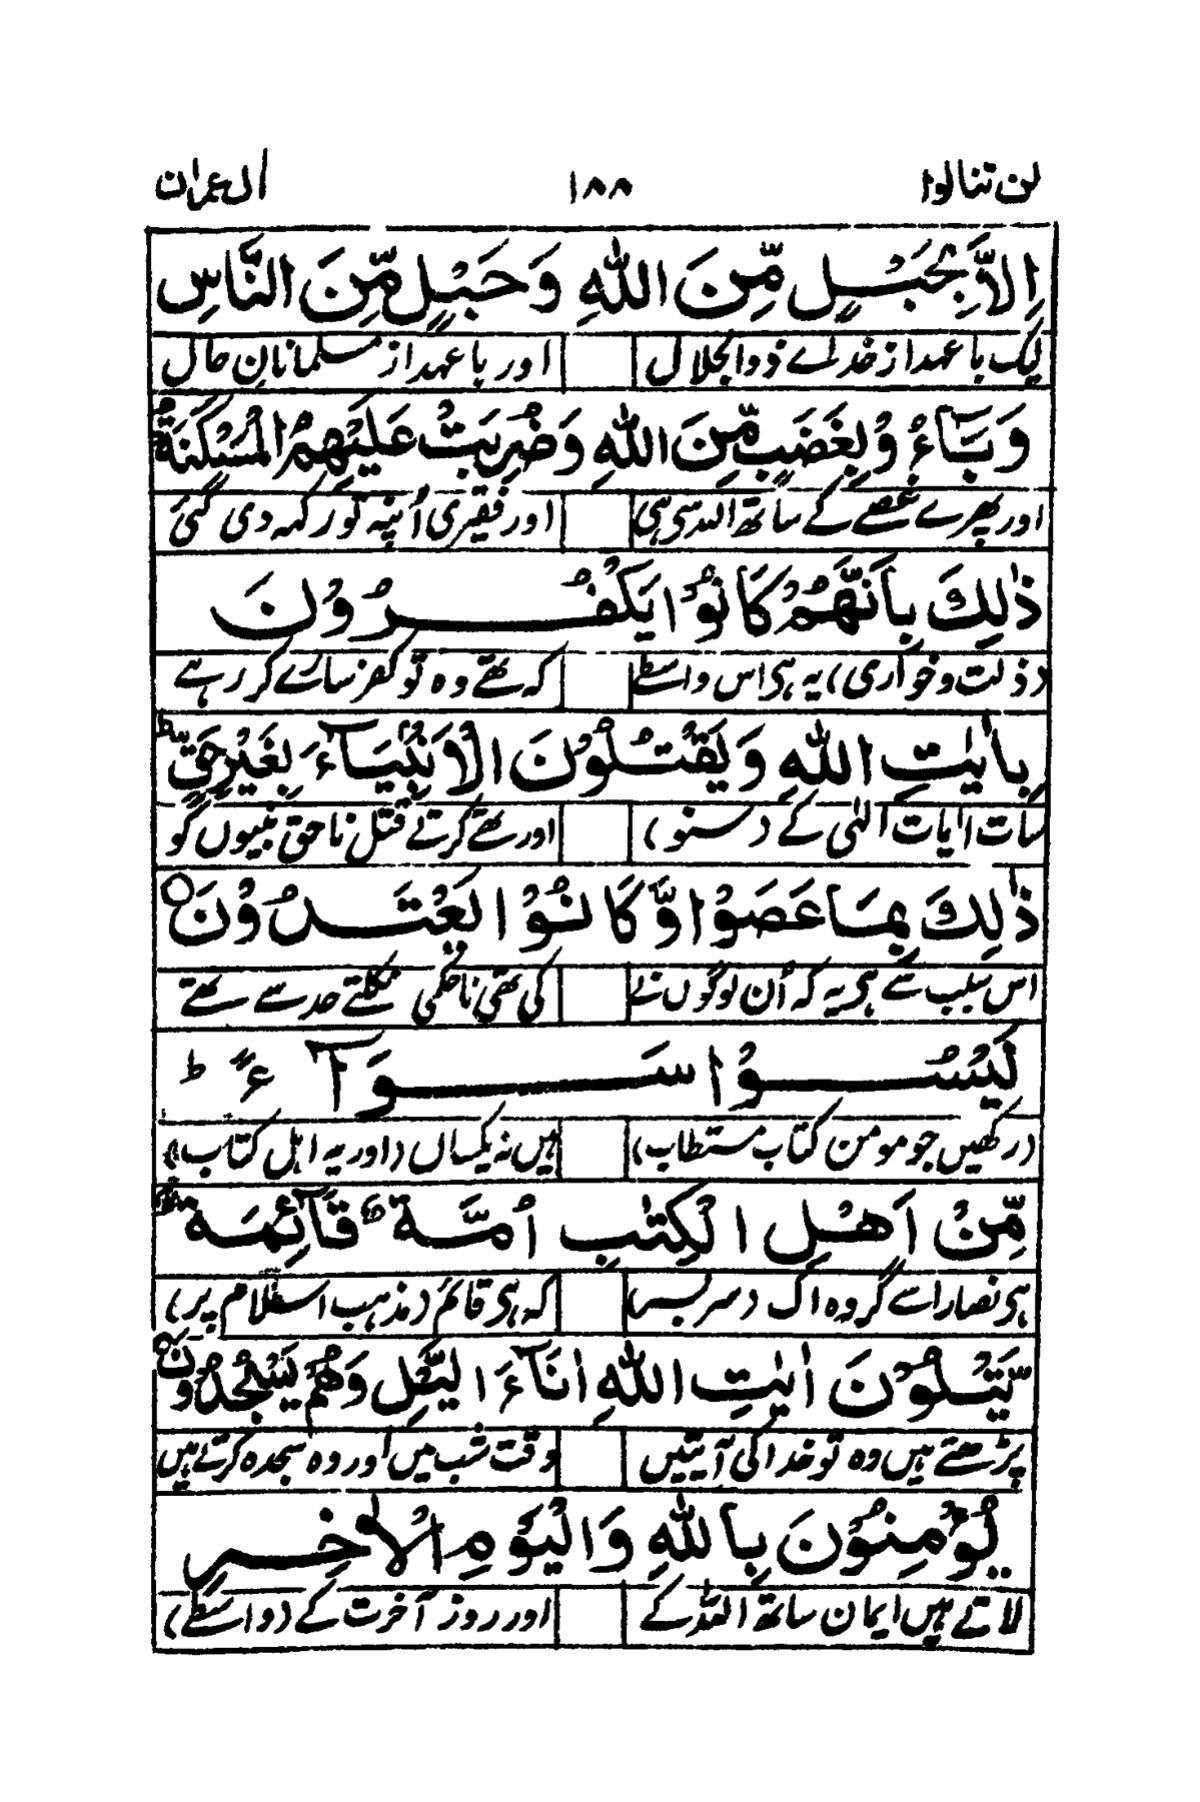 لن تنالوا ۱۸۸ اٰل عمران
اِلاَّ بِحَبْلٍ مِّنَ اللّٰهِ وَحَبْلٍ مِّنَ النَّاسِ
لیک با عہد از خدائے ذوالجلال اور با عہد از مسلمانانِ حال
وَبَآءُوْ بِغَضَبٍ مِّنَ اللّٰهِ وَضُرِبَتْ عَلَيْهِمُ الْمَسْكَنَةُ ط
اور پھرے غصے کے ساتھ اللہ سی ہی اور فقیری اُنپہ تو رکہہ دی گئی
ذٰلِكَ بِاَنَّهُمْ كَانُوْا يَكْفُرُوْنَ
(ذلت و خواری) یہ ہی اس واسطے کہ تھے وہ تو کفر سارے کر رہے
بِاٰيٰتِ اللّٰهِ وَيَقْتُلُوْنَ الْاَنْۢبِيَآءَ بِغَيْرِ حَقٍّ ط
سات اٰیات الٰہی کے (سنو) اور تھے کرتے قتل ناحق نبیوں کو
ذٰلِكَ بِمَا عَصَوْا وَّكَانُوْا يَعْتَدُوْنَ ○
اس سبب سے ہی یہ کہ اُن لوگوں نے کی تھی ناحکمی نکلتے حد سے تھے
لَيْسُوْا سَوَآءً ط
(رکھیں جو مومن کتاب مستطاب) ہیں نہ یکساں (اور یہ اہل کتاب)
مِّنْ اَهْلِ الْكِتٰبِ اُمَّةٌ قَآئِمَةٌ
ہی نصارا سے گروہ اک (سربسر) کہ ہی قائم (مذہب اسلام پر)
يَّتْلُوْنَ اٰيٰتِ اللّٰهِ اٰنَآءَ الَّيْلِ وَهُمْ يَسْجُدُوْنَ ○
پڑھتے ہیں وہ تو خدا کی آیتیں وقت شب میں اور وہ سجدہ کرتے ہیں
يُؤْمِنُوْنَ بِاللّٰهِ وَالْيَوْمِ الْاٰخِرِ
لاتے ہیں ایمان ساتھ اللہ کے اور روز آخرت کے (واسطے)